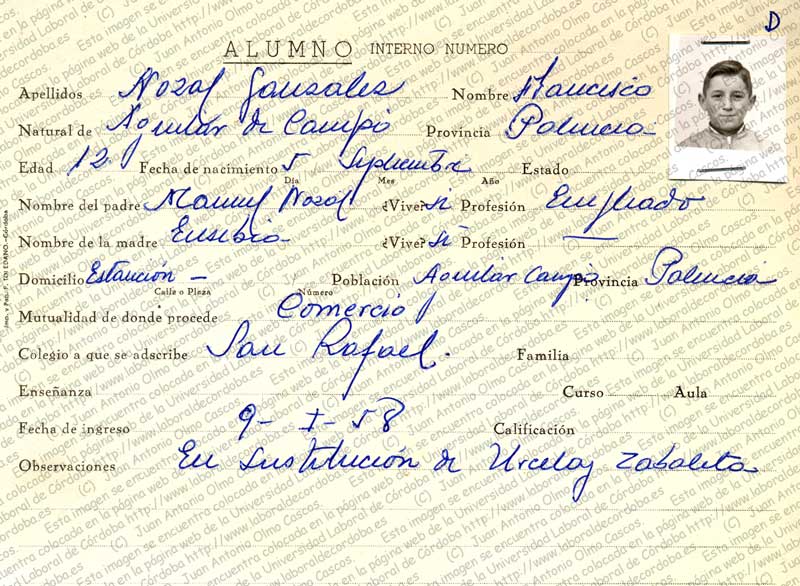 D
ALUMNO INTERNO NUMERO
Apellidos Nozal Gonzalez Nombre Francisco
Natural de Aguilar de Campó Provincia Palencia
Edad 12 Fecha de nacimiento 5 Septiembre Estado
Día Mes Año
Nombre del padre Manuel Nozal ¿Vive? si Profesión Empleado
Nombre de la madre Eusebia ¿Vive? si Profesión —
Domicilio Estación — Población Aguilar Campó Provincia Palencia
Calle o Plaza Número
Mutualidad de donde procede Comercio
Colegio a que se adscribe San Rafael. Familia
Enseñanza Curso Aula
Fecha de ingreso 9-I-58 Calificación
Observaciones En sustitución de Urcelay Zabaleta
Imp. y Pap. F. TOLEDANO.-Córdoba
(C) Juan Antonio Olmo Cascos. Esta imagen se encuentra colocada en la página web de la Universidad Laboral de Córdoba http://www.laboraldecordoba.es